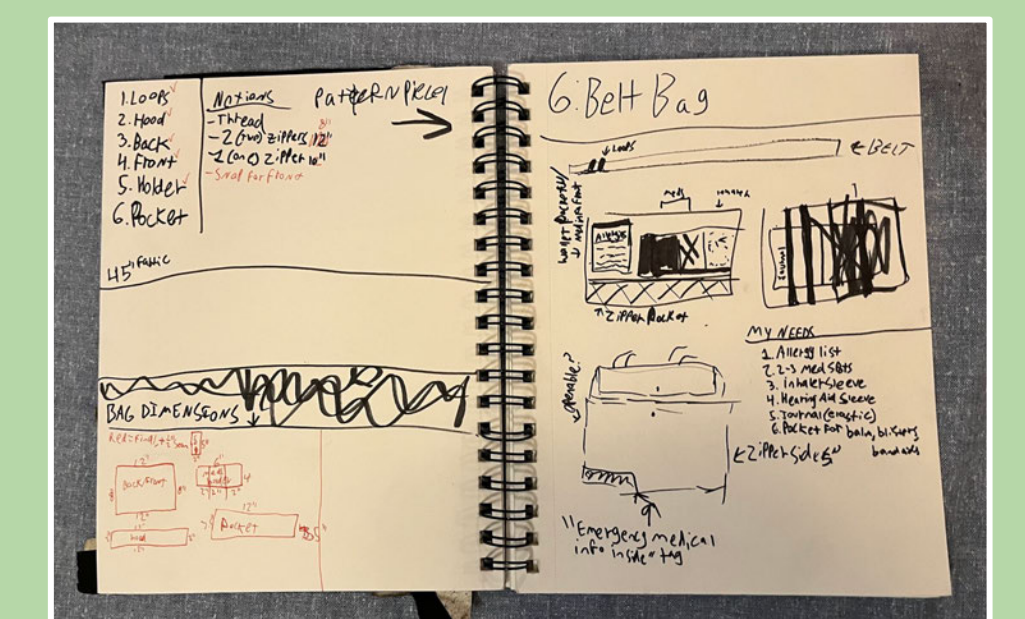 1. Loops
2. Hood
3. Back
4. Front
5. Holder
6. Pocket
Notions
- Thread
- 2 (two) zippers 12"
8"
- 1 (one) Zipper 10"
- Snap for Front
PatteRN Pieces
45" Fabric
BAG DIMENSIONS
Red = Finals +
12"
Back/Front
8" 8"
12"
6"
meds
4
2" 2" 2"
12"
hood
12"
12"
Pocket
6. Belt Bag
Loops
BELT
meds
Allergies
Zipper Pocket
Journal
MY NEEDS
1. Allergy list
2. 2-3 med slots
3. inhaler sleeve
4. Hearing Aid Sleeve
5. Journal (elastic)
6. Pocket for balm, blisters
bandaids
openable?
Zipper sides 5"
"Emergency medical
info inside" tag